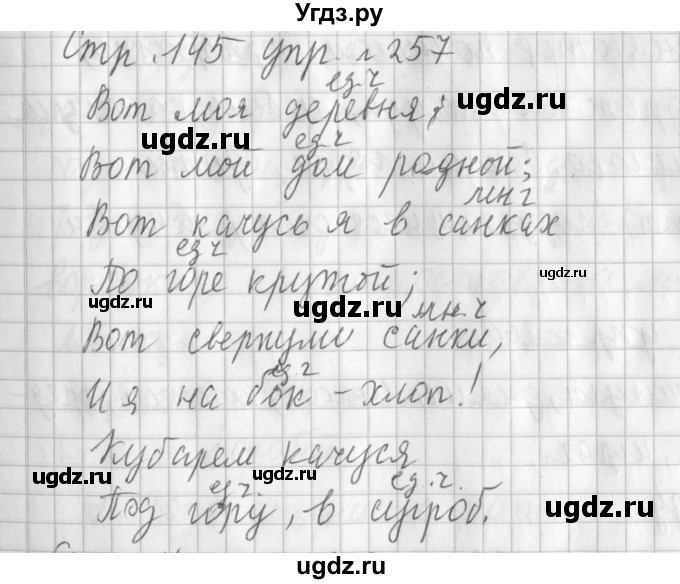 Угдз.ру
Стр. 145 упр. 257
ед.ч
Вот моя деревня;
ugdz.ru
ugdz.ru
ед.ч
Вот мой дом родной;
мн г
Вот качусь я в санках
ед ч
ugdz.ru
По горе крутой;
ugdz.ru
ugdz.ru
мн.ч
Вот свернули санки,
ugdz.ru
ед.ч
И я на бок – хлоп!
Кубарем качуся
ugdz.ru
ugdz.ru
ед ч.
ед.ч.
Под гору, в сугроб.
ugdz.ru
ugdz.ru
ugdz.ru